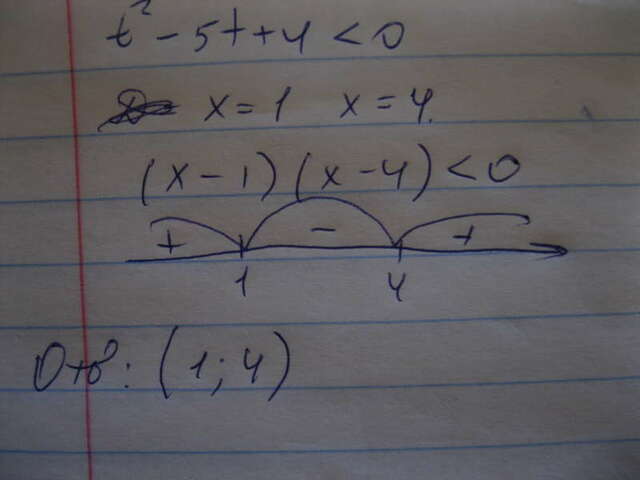 t² - 5t + 4 < 0
x = 1 x = 4.
(x - 1)(x - 4) < 0
+ - +
1 4
Отв: (1; 4)